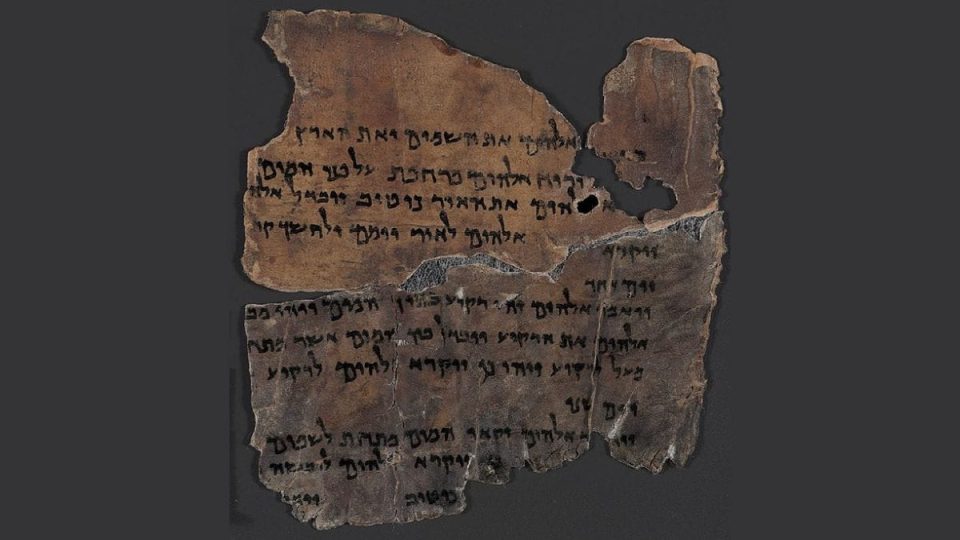 אלהים את השמים ואת הארץ
ורוח אלהים מרחפת על פני המים
אלהים את האור כי טוב ויבדל אלהי
ויקרא אלהים לאור יומם ולחשך קר
יום אחד
ויאמר אלהים יהי רקיע בתוך המים ויהי מב
אלהים את הרקיע ויבדל בין המים אשר מתח
מעל לרקיע ויהי כן ויקרא אלהים לרקיע
יום שני
אלהים יקאו המים מתחת לשמים
ויקרא אלהים ליבשה
כי טוב ויאמ